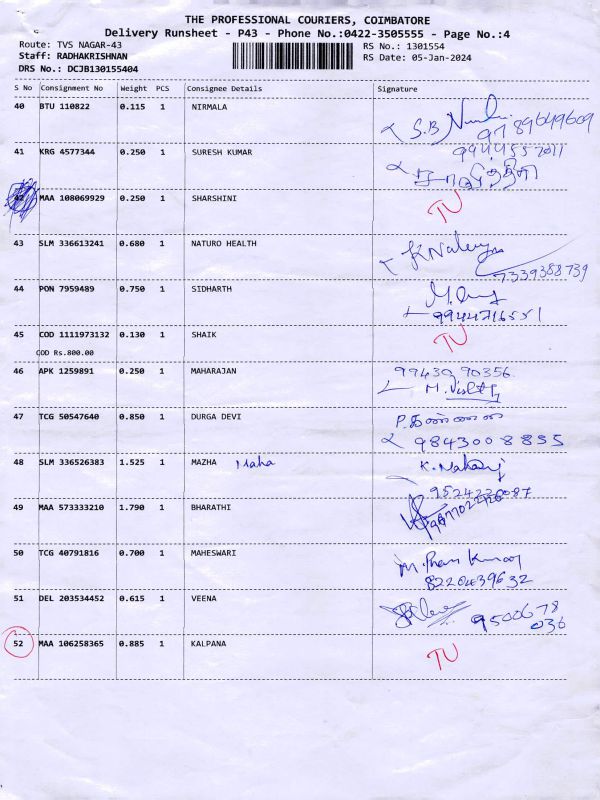 THE PROFESSIONAL COURIERS, COIMBATORE
Delivery Runsheet - P43 - Phone No.:0422-3505555 - Page No.:4
Route: TVS NAGAR-43 RS No.: 1301554
Staff: RADHAKRISHNAN RS Date: 05-Jan-2024
DRS No.: DCJB130155404
S No Consignment No Weight PCS Consignee Details Signature
40 BTU 110822 0.115 1 NIRMALA
S.B 9789649609
41 KRG 4577344 0.250 1 SURESH KUMAR
9944557011
42 MAA 108069929 0.250 1 SHARSHINI TU
43 SLM 336613241 0.680 1 NATURO HEALTH
7339388739
44 PON 7959489 0.750 1 SIDHARTH
9944716551
45 COD 1111973132 0.130 1 SHAIK TU
COD Rs.800.00
46 APK 1259891 0.250 1 MAHARAJAN 99430 90356
47 TCG 50547640 0.850 1 DURGA DEVI
9843008835
48 SLM 336526383 1.525 1 MAZHA Maha
49 MAA 573333210 1.790 1 BHARATHI
50 TCG 40791816 0.700 1 MAHESWARI
8220439632
51 DEL 203534452 0.615 1 VEENA
9500678
036
52 MAA 106258365 0.885 1 KALPANA TU